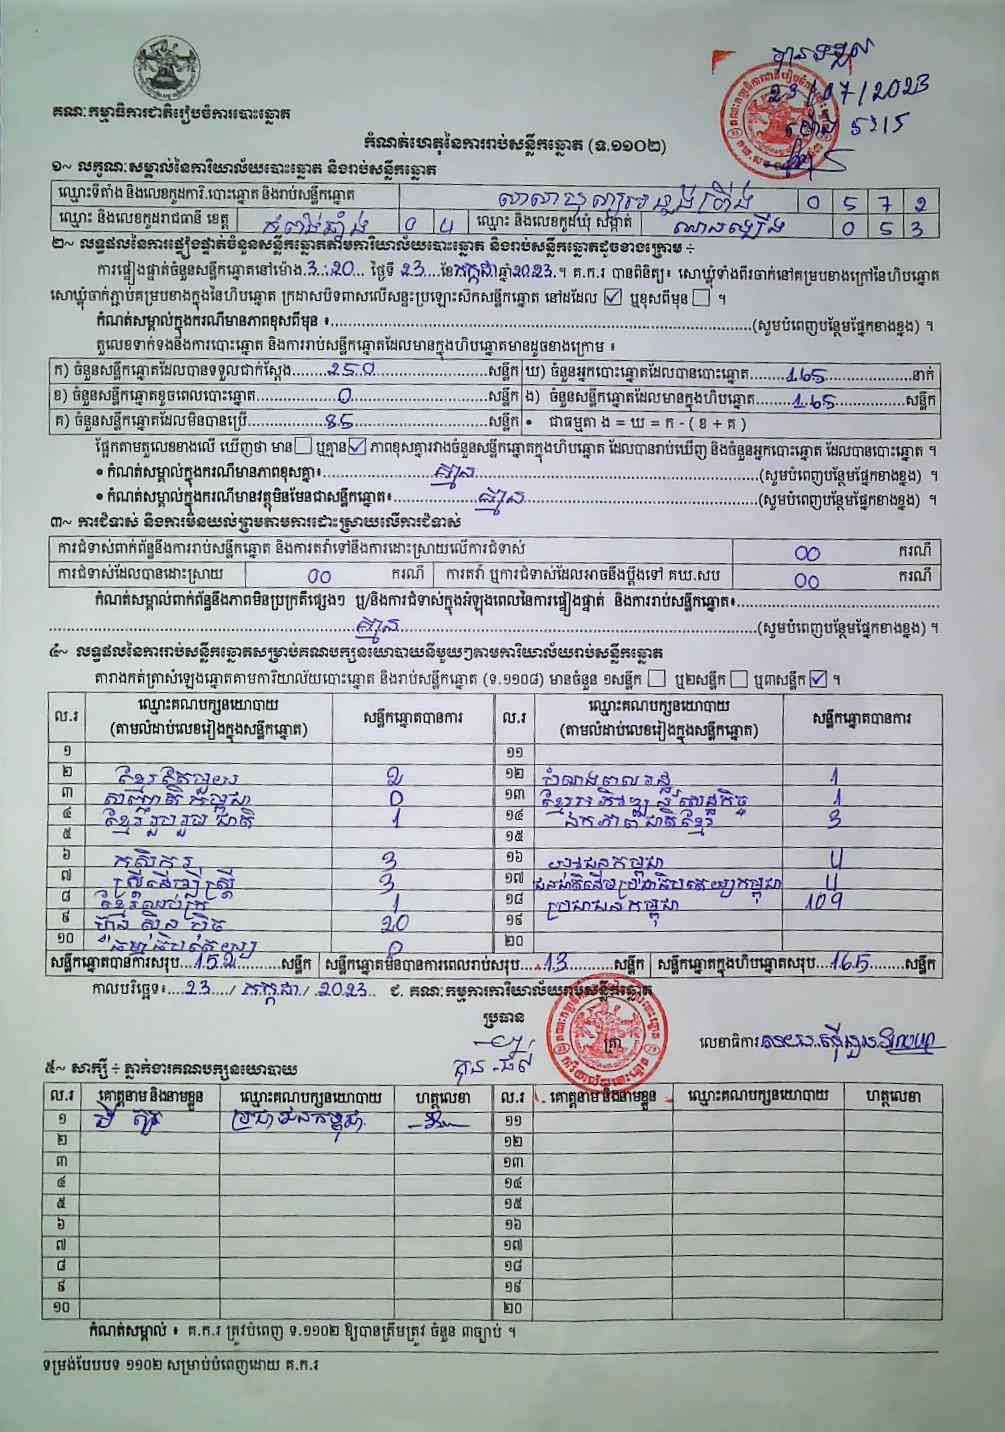 បានទទួល
23/07/2023
ម៉ោង 5:15
គណៈកម្មាធិការជាតិរៀបចំការបោះឆ្នោត
កំណត់ហេតុនៃការរាប់សន្លឹកឆ្នោត (ទ.១១០២)
១~ លក្ខណៈសម្គាល់នៃការិយាល័យបោះឆ្នោត និងរាប់សន្លឹកឆ្នោត
ឈ្មោះទីតាំង និងលេខកូដការិ.បោះឆ្នោត និងរាប់សន្លឹកឆ្នោត 0 5 7 2
ឈ្មោះ និងលេខកូដរាជធានី ខេត្ត កំពង់ឆ្នាំង 0 4 ឈ្មោះ និងលេខកូដឃុំ សង្កាត់ 0 5 3
២~ លទ្ធផលនៃការផ្ទៀងផ្ទាត់ចំនួនសន្លឹកឆ្នោតតាមការិយាល័យបោះឆ្នោត និងរាប់សន្លឹកឆ្នោតដូចខាងក្រោម ÷
ការផ្ទៀងផ្ទាត់ចំនួនសន្លឹកឆ្នោតនៅម៉ោង.3:20... ថ្ងៃទី 23....ខែកក្កដាឆ្នាំ2023.។ គ.ក.រ បានពិនិត្យ៖ សោឃ្លុំទាំងពីរចាក់នៅគម្របខាងក្រៅនៃហិបឆ្នោត
សោឃ្លុំចាក់ភ្ជាប់គម្របខាងក្នុងនៃហិបឆ្នោត ក្រដាសបិទពាសលើសន្ទះប្រឡោះសិកសន្លឹកឆ្នោត នៅដដែល ☑ ឬខុសពីមុន ☐ ។
កំណត់សម្គាល់ក្នុងករណីមានភាពខុសពីមុន ៖......(សូមបំពេញបន្ថែមផ្នែកខាងខ្នង) ។
តួលេខទាក់ទងនឹងការបោះឆ្នោត និងការរាប់សន្លឹកឆ្នោតដែលមានក្នុងហិបឆ្នោតមានដូចខាងក្រោម ៖
ក) ចំនួនសន្លឹកឆ្នោតដែលបានទទួលជាក់ស្តែង......250......សន្លឹក ឃ) ចំនួនអ្នកបោះឆ្នោតដែលបានបោះឆ្នោត......165......នាក់
ខ) ចំនួនសន្លឹកឆ្នោតខូចពេលបោះឆ្នោត......0......សន្លឹក ង) ចំនួនសន្លឹកឆ្នោតដែលមានក្នុងហិបឆ្នោត......165......សន្លឹក
គ) ចំនួនសន្លឹកឆ្នោតដែលមិនបានប្រើ......85......សន្លឹក • ជាធម្មតា ង = ឃ = ក - ( ខ + គ )
ផ្អែកតាមតួលេខខាងលើ ឃើញថា មាន ☐ ឬគ្មាន ☑ ភាពខុសគ្នារវាងចំនួនសន្លឹកឆ្នោតក្នុងហិបឆ្នោត ដែលបានរាប់ឃើញ និងចំនួនអ្នកបោះឆ្នោត ដែលបានបោះឆ្នោត ។
• កំណត់សម្គាល់ក្នុងករណីមានភាពខុសគ្នា៖......គ្មាន......(សូមបំពេញបន្ថែមផ្នែកខាងខ្នង) ។
• កំណត់សម្គាល់ក្នុងករណីមានវត្ថុមិនមែនជាសន្លឹកឆ្នោត៖......គ្មាន......(សូមបំពេញបន្ថែមផ្នែកខាងខ្នង) ។
៣~ ការជំទាស់ និងការមិនយល់ព្រមតាមការដោះស្រាយលើការជំទាស់
ការជំទាស់ពាក់ព័ន្ធនឹងការរាប់សន្លឹកឆ្នោត និងការតវ៉ាទៅនឹងការដោះស្រាយលើការជំទាស់ 00 ករណី
ការជំទាស់ដែលបានដោះស្រាយ 00 ករណី ការតវ៉ា ឬការជំទាស់ដែលអាចនឹងប្តឹងទៅ គឃ.សប 00 ករណី
កំណត់សម្គាល់ពាក់ព័ន្ធនឹងភាពមិនប្រក្រតីផ្សេងៗ ឬ/និងការជំទាស់ក្នុងអំឡុងពេលនៃការផ្ទៀងផ្ទាត់ និងការរាប់សន្លឹកឆ្នោត៖......
......គ្មាន......(សូមបំពេញបន្ថែមផ្នែកខាងខ្នង) ។
៤~ លទ្ធផលនៃការរាប់សន្លឹកឆ្នោតសម្រាប់គណបក្សនយោបាយនីមួយៗតាមការិយាល័យរាប់សន្លឹកឆ្នោត
តារាងកត់ត្រាសំឡេងឆ្នោតតាមការិយាល័យបោះឆ្នោត និងរាប់សន្លឹកឆ្នោត (ទ.១១០៨) មានចំនួន ១សន្លឹក ☐ ឬ២សន្លឹក ☐ ឬ៣សន្លឹក ☑ ។
ល.រ ឈ្មោះគណបក្សនយោបាយ (តាមលំដាប់លេខរៀងក្នុងសន្លឹកឆ្នោត) សន្លឹកឆ្នោតបានការ ល.រ ឈ្មោះគណបក្សនយោបាយ (តាមលំដាប់លេខរៀងក្នុងសន្លឹកឆ្នោត) សន្លឹកឆ្នោតបានការ
១ ១១
២ ខ្មែរតែមួយ 2 ១២ 1
៣ សញ្ជាតិកម្ពុជា 0 ១៣ ខ្មែរអភិវឌ្ឍន៍សេដ្ឋកិច្ច 1
៤ ខ្មែររួបរួមជាតិ 1 ១៤ ឯកភាពជាតិខ្មែរ 3
៥ ១៥
៦ កសិករ 3 ១៦ យុវជនកម្ពុជា 4
៧ ស្ត្រីដើម្បីស្ត្រី 3 ១៧ ជនជាតិដើមប្រជាធិបតេយ្យកម្ពុជា 4
៨ ខ្មែរឈប់ក្រ 1 ១៨ ប្រជាជនកម្ពុជា 109
៩ ហ៊្វុនស៊ិនប៉ិច 20 ១៩
១០ 0 ២០
សន្លឹកឆ្នោតបានការសរុប...152......សន្លឹក សន្លឹកឆ្នោតមិនបានការពេលរាប់សរុប...13......សន្លឹក សន្លឹកឆ្នោតក្នុងហិបឆ្នោតសរុប...165......សន្លឹក
កាលបរិច្ឆេទ៖....23..../កក្កដា/.2023.. ៩. គណៈកម្មការការិយាល័យរាប់សន្លឹកឆ្នោត
ប្រធាន ត្រា លេខាធិការ
៥~ សាក្សី ÷ ភ្នាក់ងារគណបក្សនយោបាយ
ល.រ គោត្តនាម និងនាមខ្លួន ឈ្មោះគណបក្សនយោបាយ ហត្ថលេខា ល.រ គោត្តនាម និងនាមខ្លួន ឈ្មោះគណបក្សនយោបាយ ហត្ថលេខា
១ ប្រជាជនកម្ពុជា ១១
២ ១២
៣ ១៣
៤ ១៤
៥ ១៥
៦ ១៦
៧ ១៧
៨ ១៨
៩ ១៩
១០ ២០
កំណត់សម្គាល់ ៖ គ.ក.រ ត្រូវបំពេញ ទ.១១០២ ឱ្យបានត្រឹមត្រូវ ចំនួន ៣ច្បាប់ ។
ទម្រង់បែបបទ ១១០២ សម្រាប់បំពេញដោយ គ.ក.រ